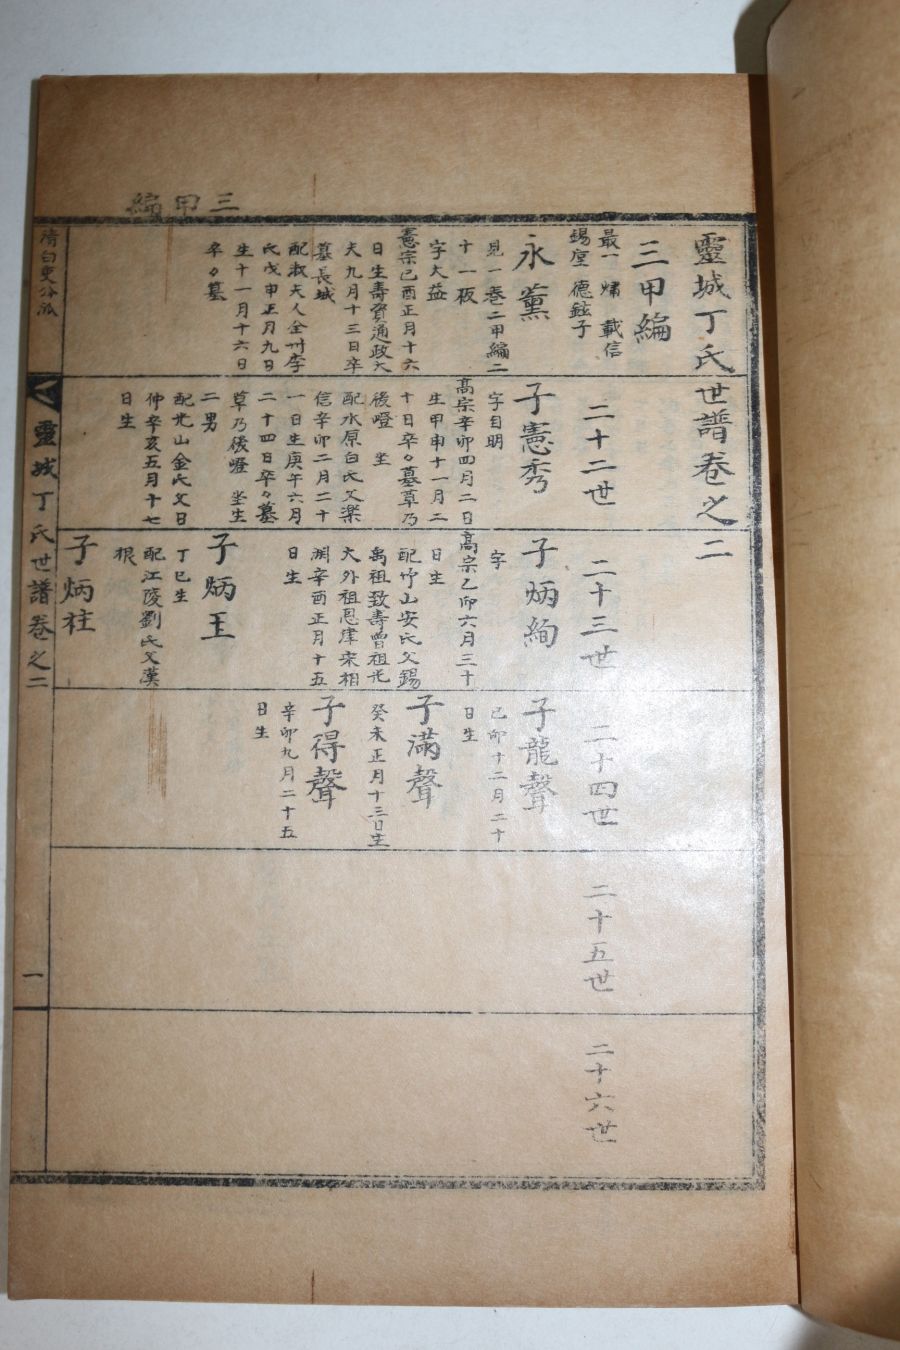 三甲編
靈城丁氏世譜卷之二
三甲編
最一 㷞 載信
錫堂 德鉉子
永薰
見一卷二甲編二
十一板
字大益
憲宗己酉正月十六
日生壽資通政大
夫九月十三日卒
墓長城
配淑夫人全州李
氏戊申正月九日
生十一月十六日
卒々墓
二十二世
子憲秀
字自明
高宗辛卯四月二日
生甲申十一月二
十日卒々墓草乃
後嶝 坐
配水原白氏父樂
信辛卯二月二十
一日生庚午六月
二十四日卒々墓
草乃後嶝 坐生
二男
配光山金氏父日
仲辛亥五月十七
日生
二十三世
子炳絢
字
高宗乙卯六月三十
日生
配竹山安氏父錫
禹祖致壽曾祖光
大外祖恩津宋相
渊辛酉正月十五
日生
子炳玉
丁巳生
配江陵劉氏父漢
根
子炳柱
二十四世
子龍聲
己卯十二月二十
日生
子滿聲
癸未正月十三日生
子得聲
辛卯九月二十五
日生
二十五世
二十六世
清白吏公派
靈城丁氏世譜卷之二
一